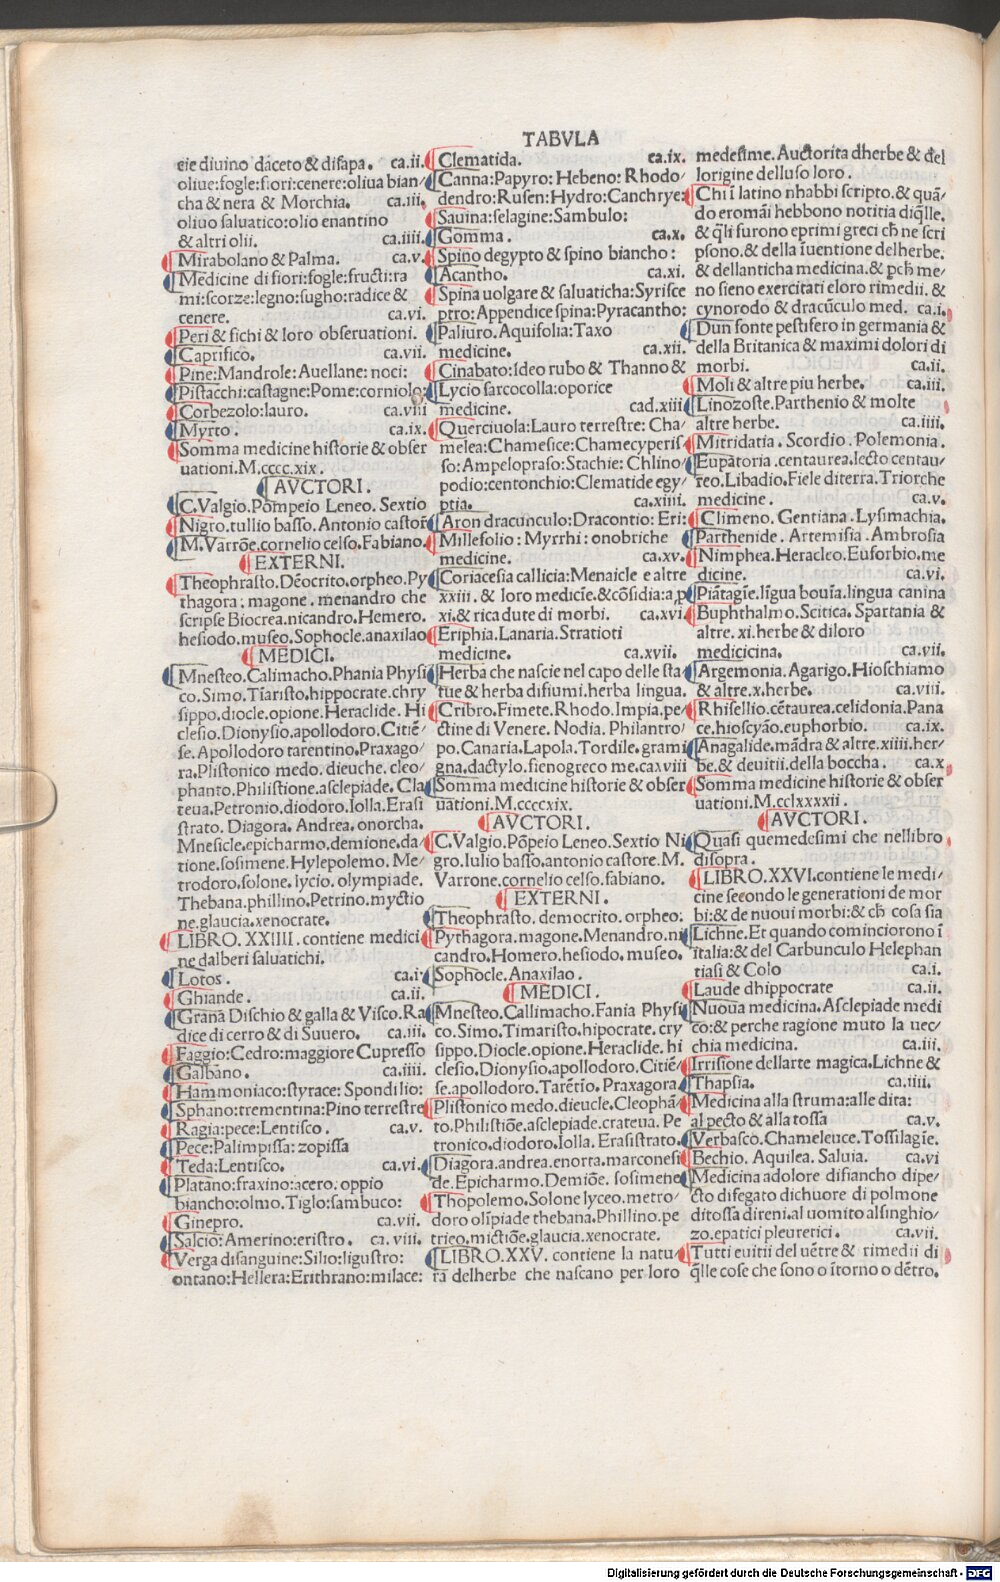 TABVLA
cie diuino daceto & disapa. ca.ii.
oliue:fogle:fiori:cenere:oliua bian/
cha & nera & Morchia. ca.iii.
oliuo saluatico:olio enantino
& altri olii. ca.iiii.
Mirabolano & Palma. ca.v.
Medicine di fiori:fogle:fructi:ra
mi:scorze:legno:sugho:radice &
cenere. ca.vi.
Peri & fichi & loro obseruationi.
Caprifico. ca.vii.
Pine:Mandrole:Auellane:noci:
Pistacchi:castagne:Pome:corniolo:
Corbezolo:lauro. ca.viii
Myrto. ca.ix.
Somma medicine historie & obser
uationi.M.cccc.xix.
AVCTORI.
C.Valgio.Pompeio Leneo. Sextio
Nigro.tullio basso. Antonio castor
M.Varrōe.cornelio celso.Fabiano.
EXTERNI.
Theophrasto.Dēocrito.orpheo.Py
thagora:magone.menandro che
scripse Biocrea.nicandro.Hemero.
hesiodo.museo.Sophocle.anaxilao
MEDICI.
Mnesteo.Calimacho.Phania Physi
co.Simo.Tīaristo.hippocrate.chry
sippo.diocle.opione.Heraclide.Hi
clesio.Dionysio.apollodoro.Citiē/
se.Apollodoro tarentino.Praxago/
ra.Plistonico medo.dieuche.cleo/
phanto.Philistione.asclepiade.Cla
teua.Petronio.diodoro.Iolla.Erasi
strato.Diagora.Andrea.onorcha.
Mnesicle.epicharmo.demione.da/
tione.sosimene.Hylepolemo.Me/
trodoro.solone.lycio.olympiade.
Thebana.phillino.Petrino.myctio
ne.glaucia.xenocrate.
LIBRO.XXIIII.contiene medici
ne dalberi saluatichi.
Lotos. ca.i.
Ghiande. ca.ii.
Grana Dischio & galla & Visco.Ra
dice di cerro & di Suuero. ca.iii.
Faggio:Cedro:maggiore Cupresso
Galbano. ca.iiii.
Hammoniaco:styrace:Spondilio:
Sphano:trementina:Pino terrestre
Ragia:pece:Lentisco. ca.v.
Pece:Palimpissa:zopissa
Teda:Lentisco. ca.vi.
Platano:fraxino:acero.oppio
biancho:olmo.Tiglo:sambuco:
Ginepro. ca.vii.
Salcio:Amerino:eristro. ca.viii.
Verga disanguine:Silio:ligustro:
ontano:Hellera:Erithrano:milace:
Clematida. ca.ix.
Canna:Papyro:Hebeno:Rhodo/
dendro:Rusen:Hydro:Canchrye:
Sauina:selagine:Sambulo:
Gomma. ca.x.
Spino degypto & spino biancho:
Acantho. ca.xi.
Spina uolgare & saluaticha:Syrisce
ptro:Appendice spina:Pyracantho:
Paliuro.Aquifolia:Taxo
medicine. ca.xii.
Cinabato:Ideo rubo & Thanno &
Lycio sarcocolla:oporice
medicine. cad.xiii
Querciuola:Lauro terrestre:Cha/
melea:Chamesice:Chamecyperis/
so:Ampelopraso:Stachie:Chlino/
podio:centonchio:Clematide egy/
ptia. ca.xiiii.
Aron dracunculo:Dracontio:Eri:
Millefolio:Myrrhi:onobriche
medicine. ca.xv.
Coriacesia callicia:Menaicle e altre
xxiii.& loro medicīe.&cōsidia:a p
xi.& ricadute di morbi. ca.xvi.
Eriphia.Lanaria.Stratioti
medicine. ca.xvii.
Herba che nascie nel capo delle sta/
tue & herba difiumi.herba lingua.
Cribro.Fimete.Rhodo.Impia.pe/
ctine di Venere.Nodia.Philantro/
po.Canaria.Lapola.Tordile.grami
gna.dactylo.fienogreco me.ca.xviii
Somma medicine historie & obser
uationi.M.ccccxix.
AVCTORI.
C.Valgio.Pōpeio Leneo.Sextio Ni
gro.Iulio basso.antonio castore.M.
Varrone.cornelio celso.fabiano.
EXTERNI.
Theophrasto.democrito.orpheo.
Pythagora.magone.Menandro.ni
candro.Homero.hesiodo.museo.
Sophocle.Anaxilao.
MEDICI.
Mnesteo.Callimacho.Fania Physi
co.Simo.Timaristo.hipocrate.cry
sippo.Diocle.opione.Heraclide.hi
clesio.Dionysio.apollodoro.Citiē/
se.apollodoro.Tarētio.Praxagora
Plistonico medo.dieucle.Cleophā/
to.Philistiōe.asclepiade.crateua.Pe
tronico.diodoro.Iolla.Erasistrato.
Diagora.andrea.enorta.marconesi
de.Epicharmo.Demiōe.sosimene
Thopolemo.Solone lyceo.metro/
doro olīpiade thebana.Phillino.pe
trico.mictiōe.glaucia.xenocrate.
LIBRO.XXV. contiene la natu/
ra delherbe che nascano per loro
medesime.Auctorita dherbe & del
lorigine delluso loro.
Chi ī latino nhabbi scripto.& quā/
do eromāi hebbono notitia diq̄lle.
& q̄li furono eprimi greci ch̄ ne scri
psono.& della īuentione delherbe.
& dellanticha medicina.& pch̄ me/
no sieno exercitati eloro rimedii.&
cynorodo & dracūculo med. ca.i.
Dun fonte pestifero in germania &
della Britanica & maximi dolori di
morbi. ca.ii.
Moli & altre piu herbe. ca.iii.
Linozoste.Parthenio & molte
altre herbe. ca.iiii.
Mitridatia.Scordio.Polemonia.
Eupatoria.centaurea.lecto centau/
reo.Libadio.Fiele diterra.Triorche
medicine. ca.v.
Climeno.Gentiana.Lysimachia.
Parthenide.Artemisia.Ambrosia
Nimphea.Heracleo.Euforbio.me
dicine. ca.vi.
Piātagīe.līgua bouīa.lingua canina
Buphthalmo.Scitica.Spartania &
altre.xi.herbe & diloro
medicicina. ca.vii.
Argemonia.Agarigo.Hioschiamo
& altre.x.herbe. ca.viii.
Rhisellio.cētaurea.celidonia.Pana
ce.hioscyāo.euphorbio. ca.ix.
Anagalide.mādra & altre.xiiii.her/
be.& deuitii.della boccha. ca.x.
Somma medicine historie & obser
uationi.M.cclxxxxii.
AVCTORI.
Quasi quemedesimi che nellibro
disopra.
LIBRO.XXVI.contiene le medi/
cine secondo le generationi de mor
bi:& de nuoui morbi:& ch̄ cosa sia
Lichne.Et quando cominciorono ī
italia:& del Carbunculo Helephan
tiasi & Colo ca.i.
Laude dhippocrate ca.ii.
Nuoua medicina.Asclepiade medi
co:& perche ragione muto la uec/
chia medicina. ca.iii.
Irrisione dellarte magica.Lichne &
Thapsia. ca.iiii.
Medicina alla struma:alle dita:
al pecto & alla tossa ca.v.
Verbasco.Chameleuce.Tossilagīe.
Bechio.Aquilea.Saluia. ca.vi
Medicina adolore difiancho dipe/
cto difegato dichuore di polmone
ditossa direni.al uomito alsinghio/
zo.epatici pleuretici. ca.vii.
Tutti euitii del uētre & rimedii di
q̄lle cose che sono o ītorno o dētro.
Digitalisierung gefördert durch die Deutsche Forschungsgemeinschaft - DFG